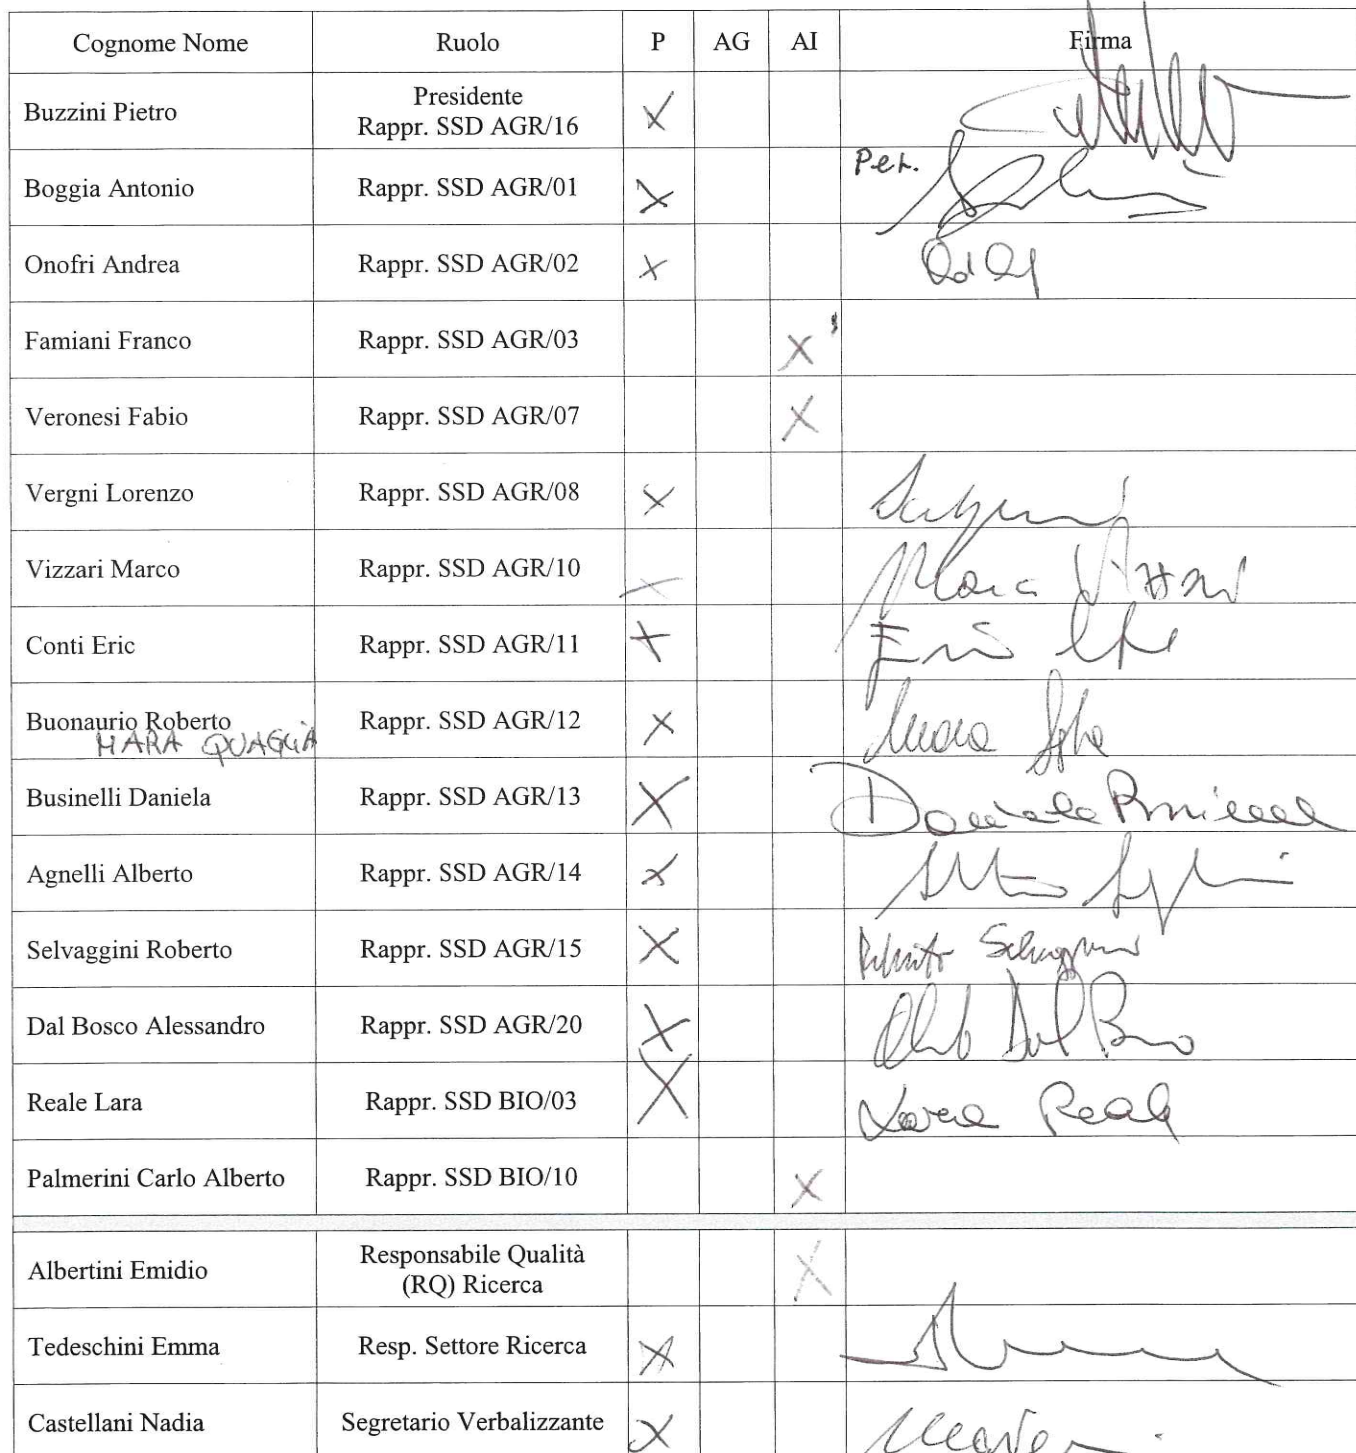 Cognome Nome Ruolo P AG AI Firma
Buzzini Pietro Presidente
Rappr. SSD AGR/16 X
Boggia Antonio Rappr. SSD AGR/01 X Per.
Onofri Andrea Rappr. SSD AGR/02 X
Famiani Franco Rappr. SSD AGR/03 X
Veronesi Fabio Rappr. SSD AGR/07 X
Vergni Lorenzo Rappr. SSD AGR/08 X
Vizzari Marco Rappr. SSD AGR/10 X
Conti Eric Rappr. SSD AGR/11 X Eric
Buonaurio Roberto Rappr. SSD AGR/12 X
MARA QUAGLIA
Businelli Daniela Rappr. SSD AGR/13 X Daniela Businelli
Agnelli Alberto Rappr. SSD AGR/14 X
Selvaggini Roberto Rappr. SSD AGR/15 X Roberto Selvaggini
Dal Bosco Alessandro Rappr. SSD AGR/20 X Dal Bosco
Reale Lara Rappr. SSD BIO/03 X Lara Reale
Palmerini Carlo Alberto Rappr. SSD BIO/10 X
Albertini Emidio Responsabile Qualità
(RQ) Ricerca X
Tedeschini Emma Resp. Settore Ricerca X
Castellani Nadia Segretario Verbalizzante X